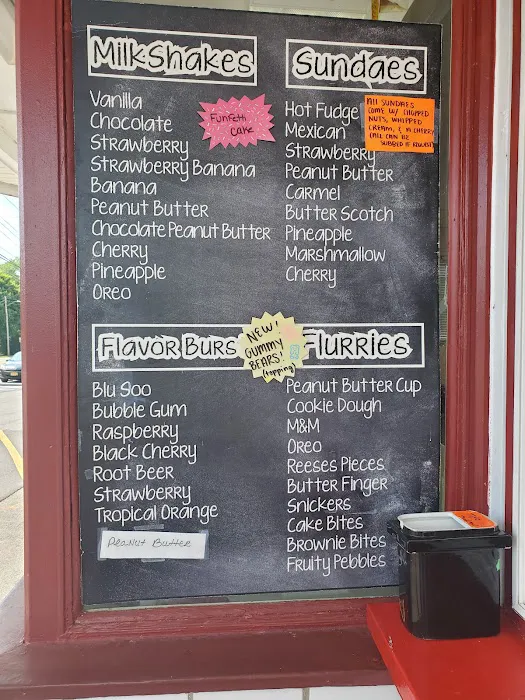 MilkShakes
Vanilla
Chocolate
Strawberry
Strawberry Banana
Banana
Peanut Butter
Chocolate Peanut Butter
Cherry
Pineapple
Oreo
Funfetti
Cake
Sundaes
Hot Fudge
Mexican
Strawberry
Peanut Butter
Carmel
Butter Scotch
Pineapple
Marshmallow
Cherry
All SUNDAES
COME W/ CHOPPED
NUTS, WHIPPED
CREAM, & A CHERRY
(ALL CAN BE
SUBBED IF REQUEST
Flavor Burs
Blu Goo
Bubble Gum
Raspberry
Black Cherry
Root Beer
Strawberry
Tropical Orange
Peanut Butter
NEW!
GUMMY
BEARS!
(topping)
Flurries
Peanut Butter Cup
Cookie Dough
M&M
Oreo
Reeses Pieces
Butter Finger
Snickers
Cake Bites
Brownie Bites
Fruity Pebbles